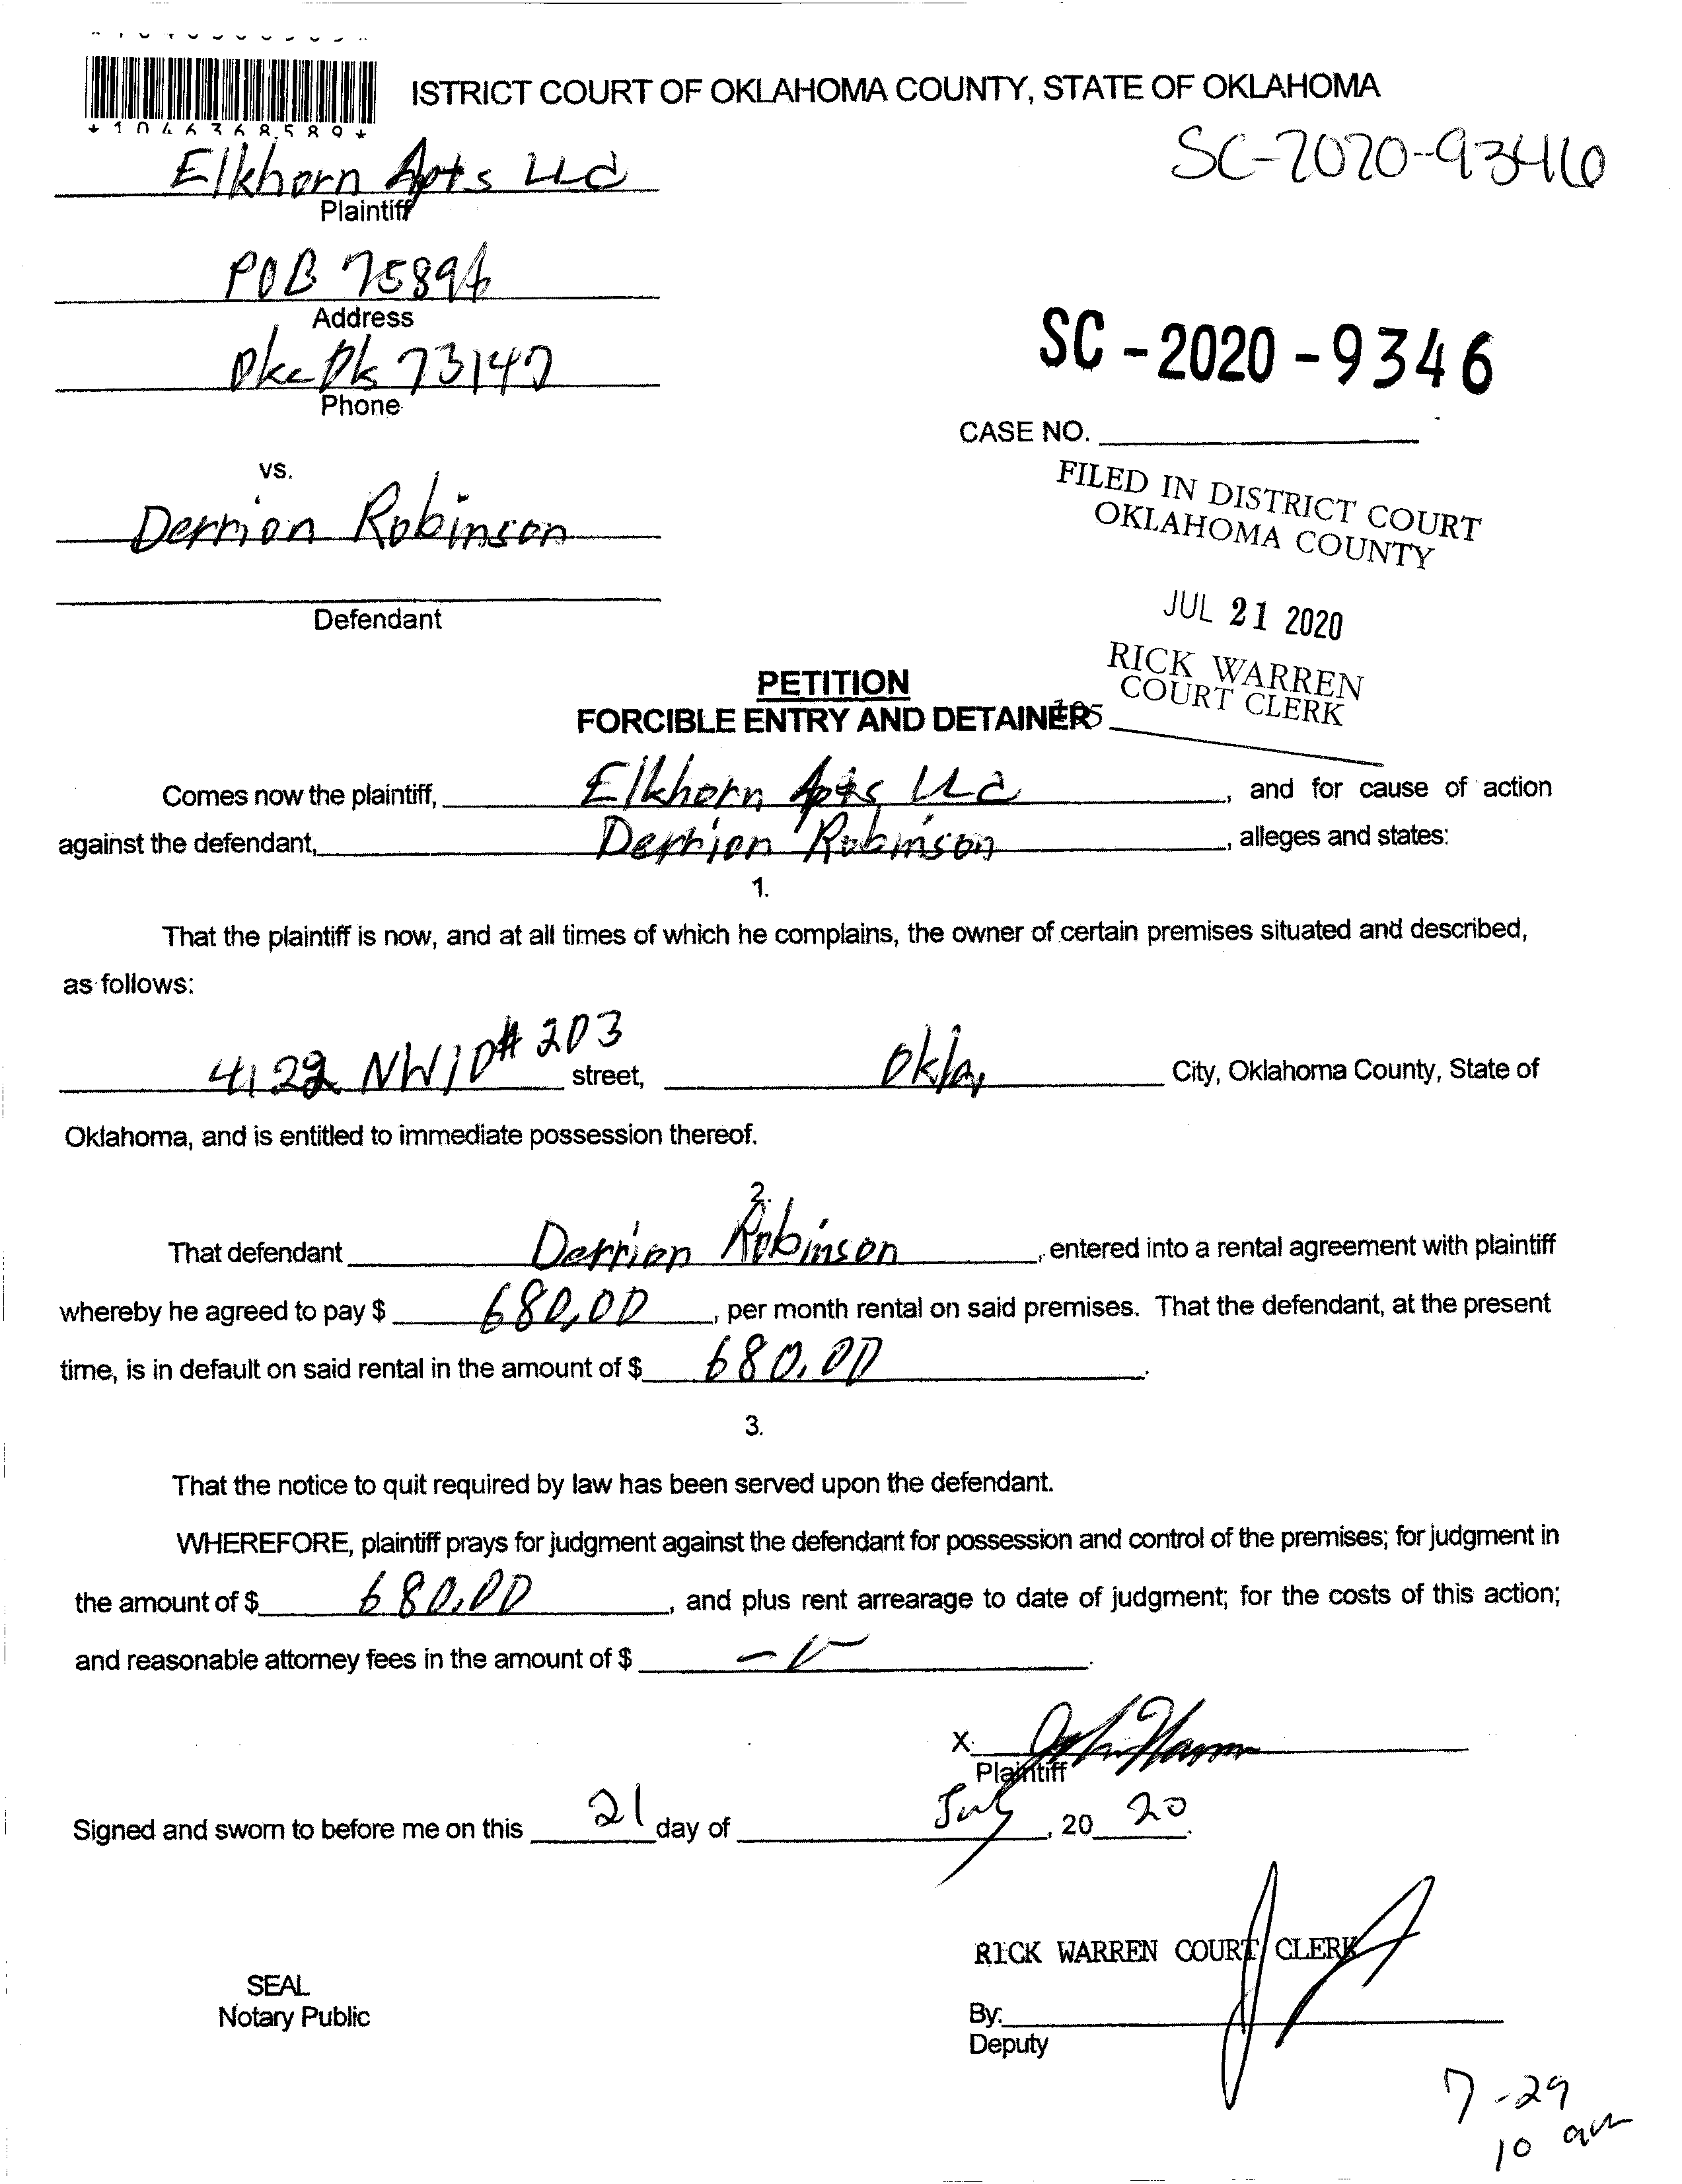 ISTRICT COURT OF OKLAHOMA COUNTY, STATE OF OKLAHOMA
*1046368589*
SC-2020-9346
Elkhorn Apts LLC
Plaintiff
POB 75896
Address
SC-2020-9346
Okc Ok 73147
Phone
CASE NO.
vs.
FILED IN DISTRICT COURT
OKLAHOMA COUNTY
Derrion Robinson
JUL 21 2020
Defendant
RICK WARREN
COURT CLERK
PETITION
FORCIBLE ENTRY AND DETAINER
Comes now the plaintiff, Elkhorn Apts LLC, and for cause of action
against the defendant, Derrion Robinson, alleges and states:
1.
That the plaintiff is now, and at all times of which he complains, the owner of certain premises situated and described,
as follows:
4122 NW10 #203 street, Okla, City, Oklahoma County, State of
Oklahoma, and is entitled to immediate possession thereof.
2.
That defendant Derrion Robinson, entered into a rental agreement with plaintiff
whereby he agreed to pay $ 680.00, per month rental on said premises. That the defendant, at the present
time, is in default on said rental in the amount of $ 680.00.
3.
That the notice to quit required by law has been served upon the defendant.
WHEREFORE, plaintiff prays for judgment against the defendant for possession and control of the premises; for judgment in
the amount of $ 680.00, and plus rent arrearage to date of judgment; for the costs of this action;
and reasonable attorney fees in the amount of $
X
Plaintiff
Signed and sworn to before me on this 21 day of July, 20 20.
RICK WARREN COURT CLERK
SEAL
Notary Public
By:
Deputy
7-29
10 am